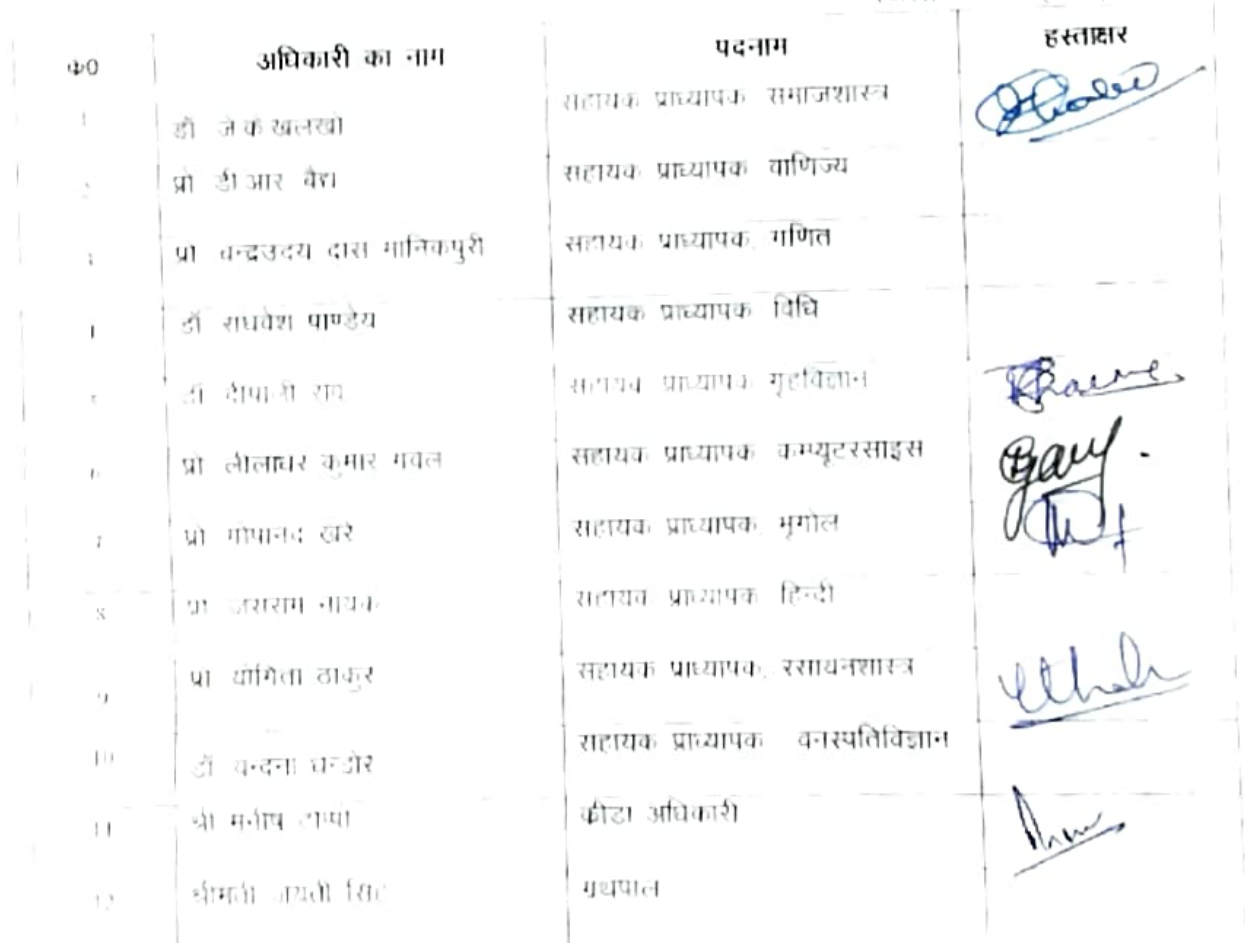 क्र0 अधिकारी का नाम पदनाम हस्ताक्षर
1 डॉ जे के खलखो सहायक प्राध्यापक समाजशास्त्र
2 प्रो डी आर वैद्य सहायक प्राध्यापक वाणिज्य
3 प्रो चन्द्रउदय दास मानिकपुरी सहायक प्राध्यापक, गणित
4 डॉ राघवेश पाण्डेय सहायक प्राध्यापक विधि
5 डॉ दीपाली राव सहायक प्राध्यापक गृहविज्ञान
6 प्रो लीलाधर कुमार गवल सहायक प्राध्यापक कम्प्यूटरसाइंस
7 प्रो गोपानंद खरे सहायक प्राध्यापक, भूगोल
8 प्रो जसराम नायक सहायक प्राध्यापक हिन्दी
9 प्रो योगिता ठाकुर सहायक प्राध्यापक, रसायनशास्त्र
10 डॉ वन्दना सहायक प्राध्यापक वनस्पतिविज्ञान
11 श्री मनीष टोप्पो क्रीडा अधिकारी
12 श्रीमती जयती सिंह ग्रंथपाल